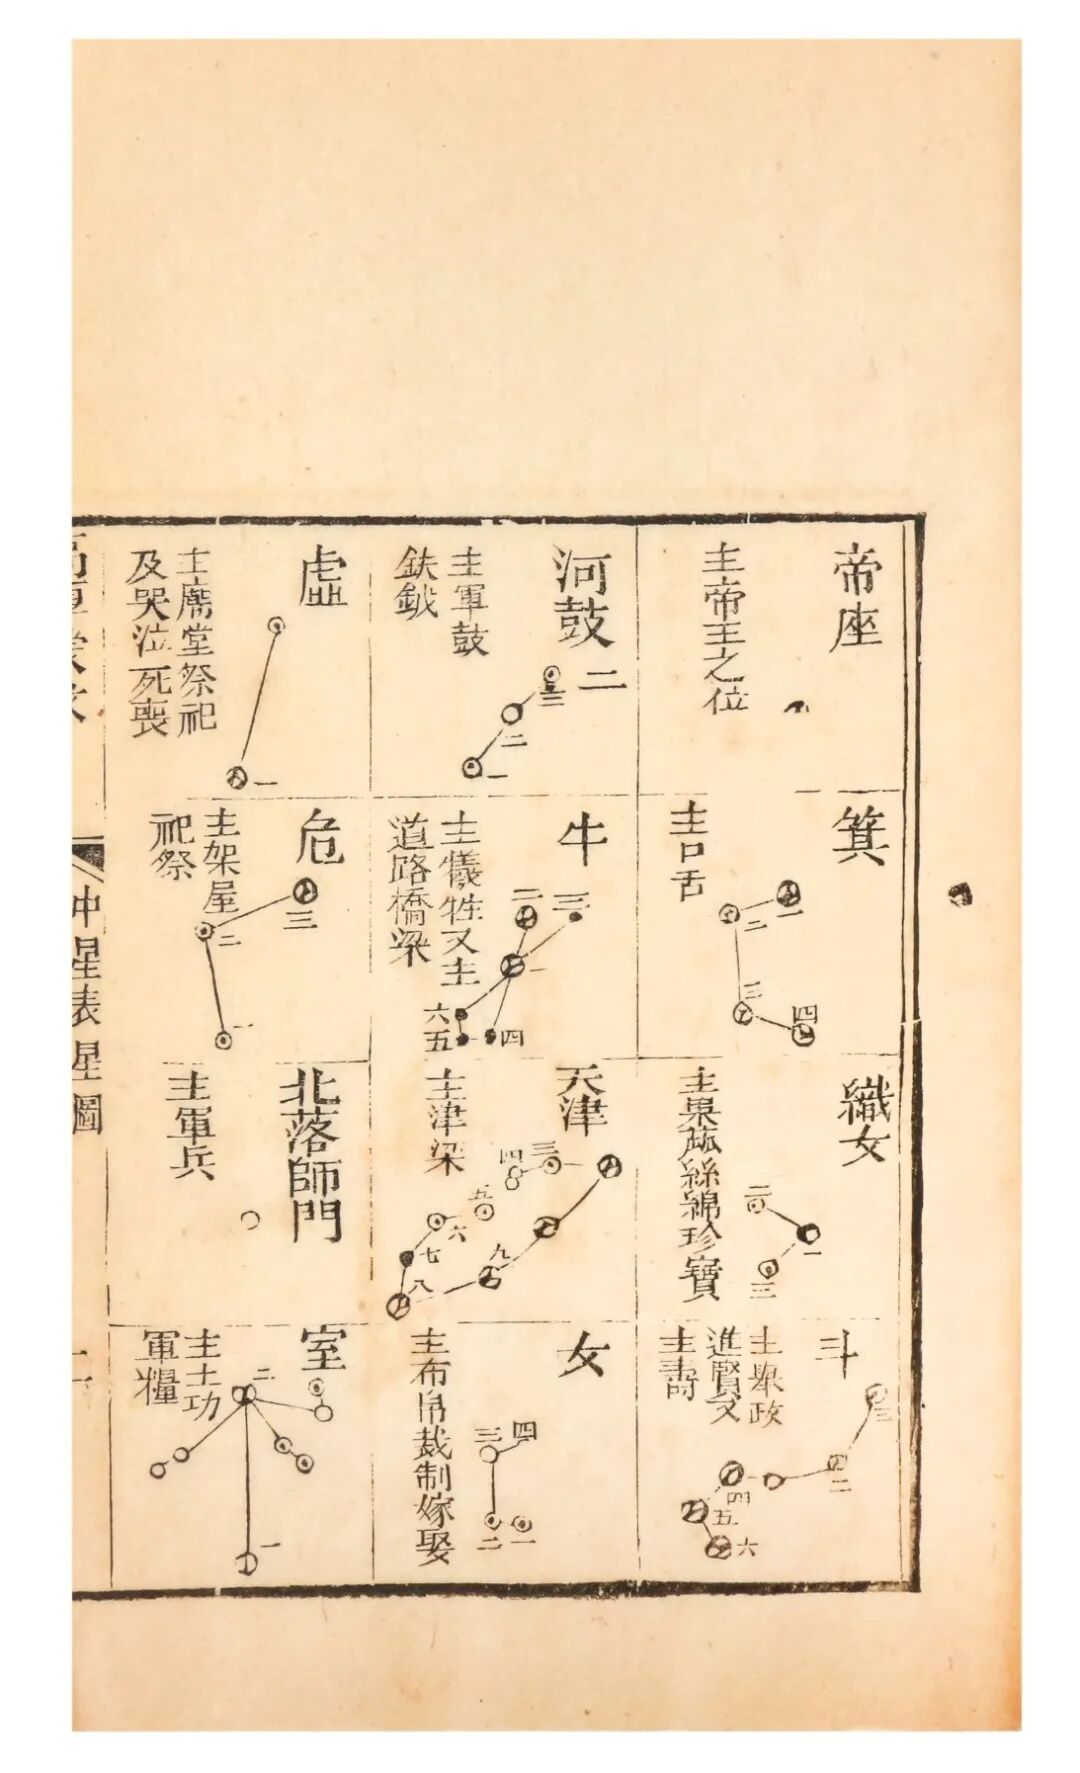 帝座
主帝王之位
箕
主口舌
一
二
三
四
織女
主果蓏絲綿珍寶
一
二
三
斗
主舉政
進賢又
主壽
三
二
四
五
六
河鼓二
主軍鼓
鈇鉞
三
二
一
牛
主犧牲又主
道路橋梁
二
三
一
六
五
四
天津
主津梁
三
四
五
六
七
八
九
女
主布帛裁制嫁娶
四
三
二
一
虛
主廟堂祭祀
及哭泣死喪
一
危
主架屋
祀祭
三
二
一
北落師門
主軍兵
室
主土功
軍糧
二
一
中星表星圖